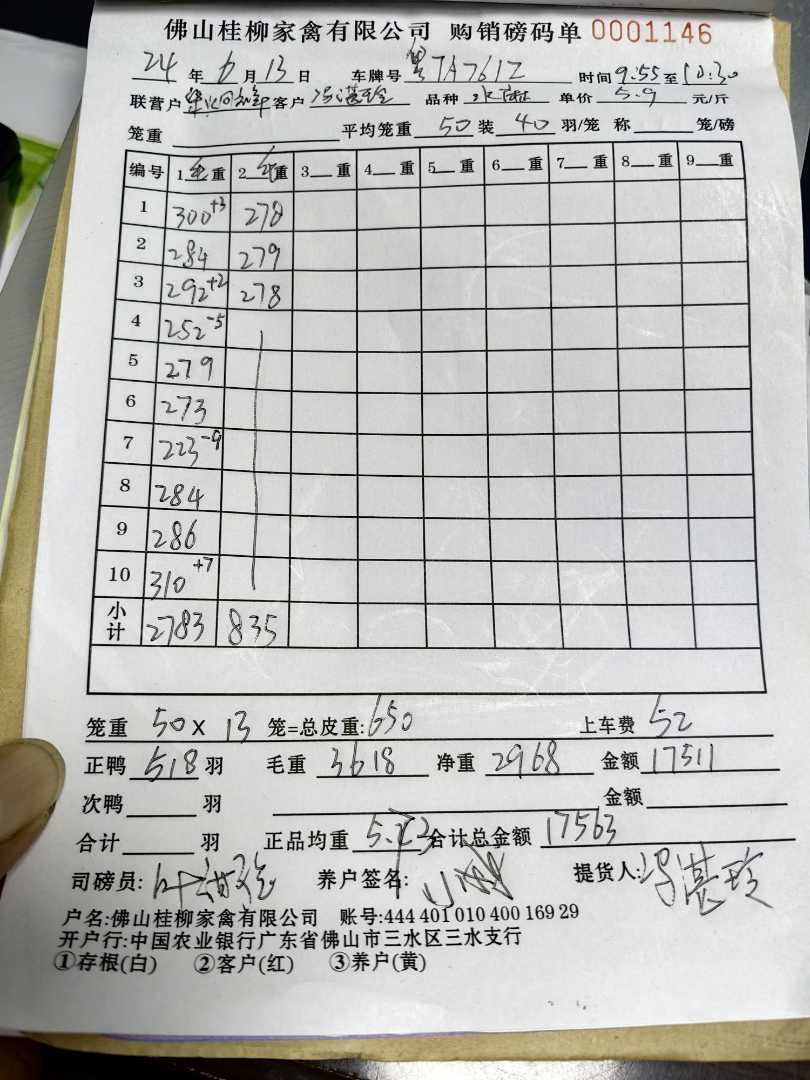 佛山桂柳家禽有限公司 购销磅码单 0001146
24 年 6 月 13 日 车牌号 粤TA761Z 时间 9:55 至 10:30
联营户 客户 冯湛玲 品种 单价 5.9 元/斤
笼重 平均笼重 50 装 40 羽/笼 称 笼/磅
编号 1 毛 重 2 毛 重 3 重 4 重 5 重 6 重 7 重 8 重 9 重
1 300+3 278
2 284 279
3 292+2 278
4 252-5
5 279
6 273
7 223-9
8 284
9 286
10 310+7
小计 2783 835
笼重 50 X 13 笼=总皮重: 650 上车费 52
正鸭 518 羽 毛重 3618 净重 2968 金额 17511
次鸭 羽 金额
合计 羽 正品均重 5.73 合计总金额 17563
司磅员: 养户签名: 提货人: 冯湛玲
户名:佛山桂柳家禽有限公司 账号:444 401 010 400 169 29
开户行:中国农业银行广东省佛山市三水区三水支行
①存根(白) ②客户(红) ③养户(黄)